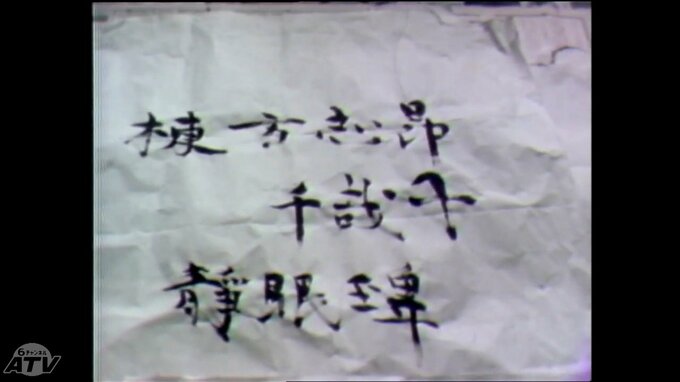 棟方志昂
千哉子
靜眠碑
6チャンネル
ATV